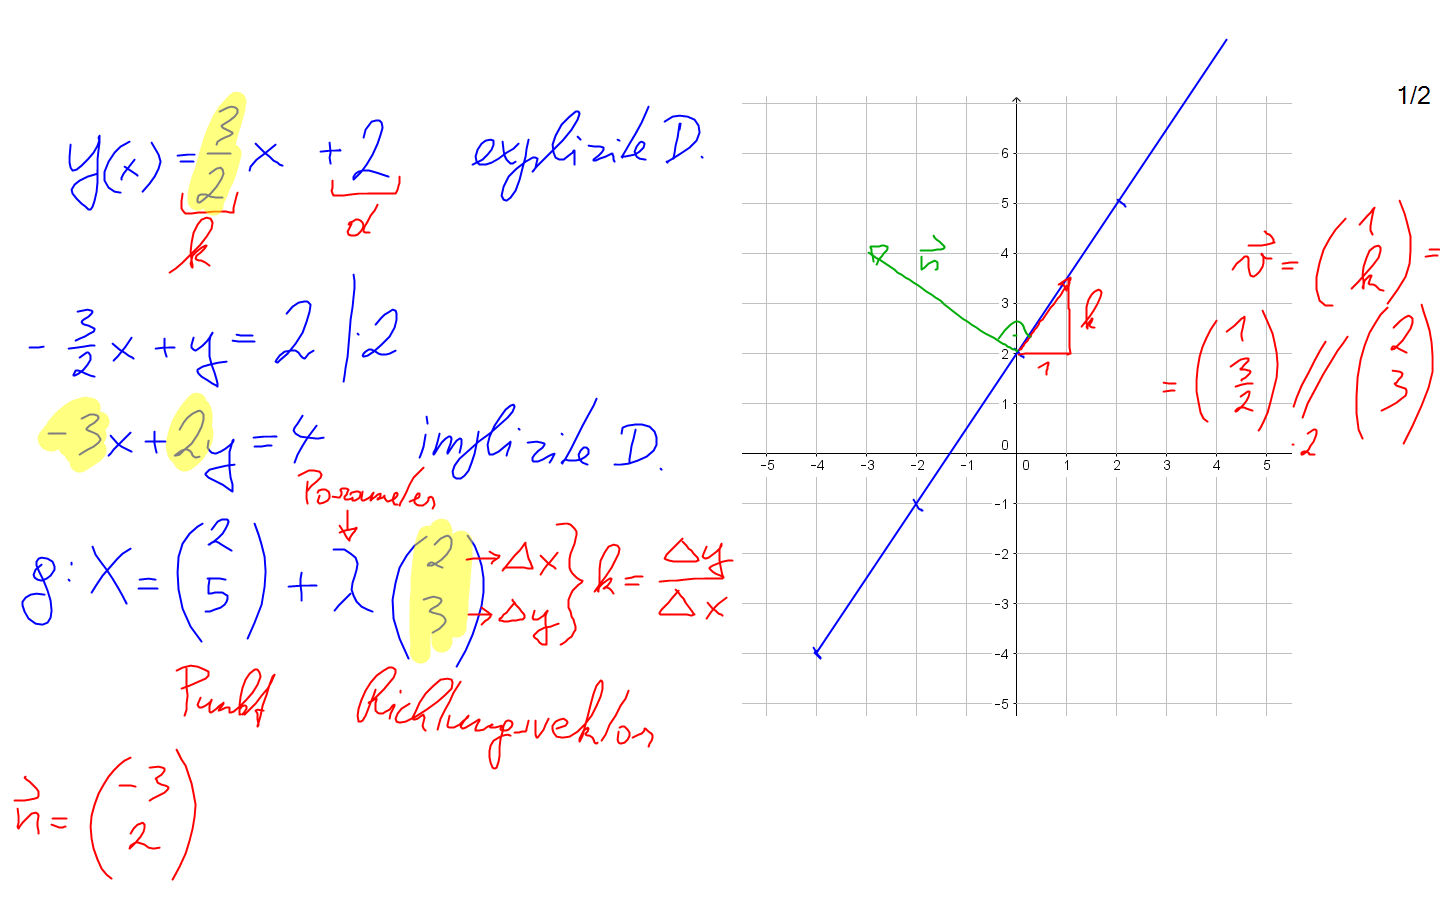 1/2
y(x) = 3/2 x + 2 explizite D.
k d
- 3/2 x + y = 2 | ·2
-3x + 2y = 4 implizite D.
Parameter
g: X = (2 5) + λ (2 3) → Δx → Δy } k = Δy/Δx
Punkt Richtungsvektor
n⃗ = (-3 2)
6
5
4
3
2
1
0
-5 -4 -3 -2 -1 0 1 2 3 4 5
-1
-2
-3
-4
-5
n⃗
k
1
v⃗ = (1 k) =
= (1 3/2) // (2 3)
·2